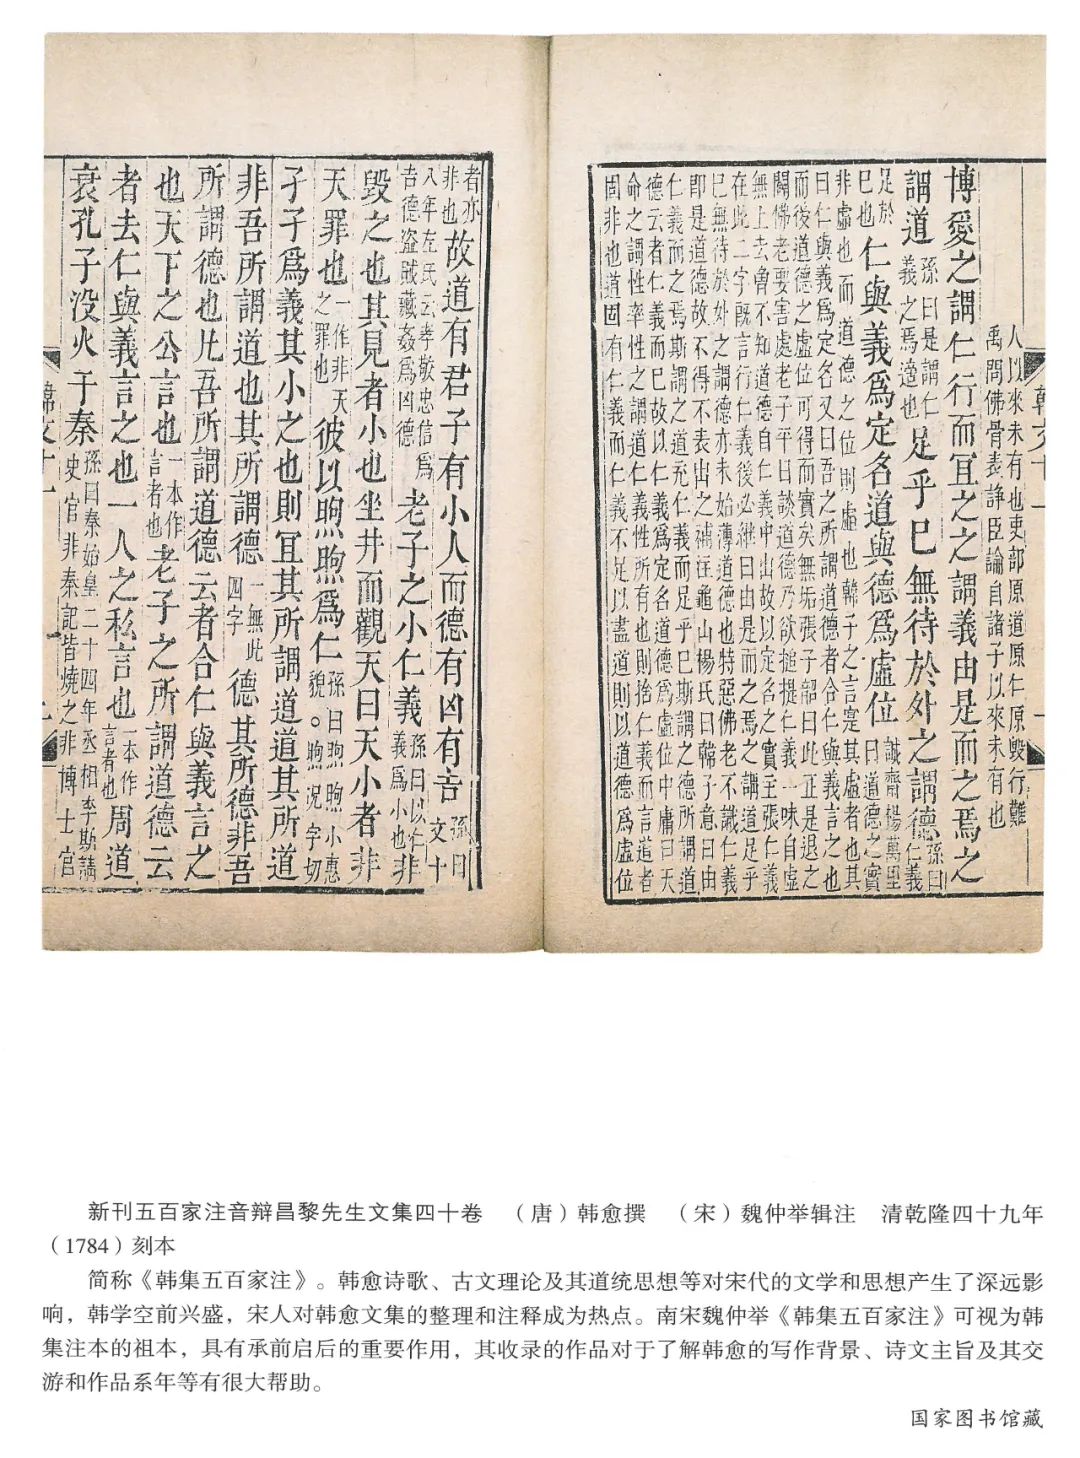 韓文十一
人以來未有也吏部原道原仁原毁行難
禹問佛骨表諍臣論自諸子以來未有也
博愛之謂仁行而冝之之謂義由是而之焉之
謂道孫曰是謂仁義之焉適也足乎巳無待於外之謂德孫曰仁義
足於巳也仁與義爲定名道與德爲虛位誠齋楊萬里曰道德之實
非虛也而道德之位則虛也韓子之言寔其虛者也其
曰仁與義爲定名又曰吾之所謂道德者合仁與義言之也
而後道德之虛位可得而實矣無垢張子韶曰此正是退之
闢佛老要害處老子平日談道德乃欲搥提仁義一味自虛
無上去曾不知道德自仁義中出故以定名之實主張仁義
在此二字既言行仁義後必継曰由是而之焉之謂道足乎
巳無待於外之謂德亦未始薄道德也特惡佛老不識仁義
即是道德故不得不表出之補注龜山楊氏曰韓子意曰由
仁義而之焉斯謂之道充仁義而足乎巳斯謂之德所謂道
德云者仁義而巳故以仁義爲定名道德爲虛位中庸曰天
命之謂性率性之謂道仁義性所有也則捨仁義而言道者
固非也道固有仁義而仁義不足以盡道則以道德爲虛位
者亦非也故道有君子有小人而德有凶有吉孫曰文十
八年左氏云孝敬忠信爲吉德盗賊藏姦爲凶德老子之小仁義孫曰以仁義爲小也非
毁之也其見者小也坐井而觀天曰天小者非
天罪也一作非天之罪也彼以煦煦爲仁孫曰煦煦小惠貌。煦况字切
孑孑爲義其小之也則冝其所謂道道其所道
非吾所謂道也其所謂德一無此四字德其所德非吾
所謂德也凡吾所謂道德云者合仁與義言之
也天下之公言也一本作言者也老子之所謂道德云
者去仁與義言之也一人之私言也一本作言者也周道
衰孔子没火于秦孫曰秦始皇二十四年丞相李斯請史官非秦記皆燒之非博士官
韓文十一
新刊五百家注音辩昌黎先生文集四十卷　（唐）韩愈撰　（宋）魏仲举辑注　清乾隆四十九年
（1784）刻本
简称《韩集五百家注》。韩愈诗歌、古文理论及其道统思想等对宋代的文学和思想产生了深远影
响，韩学空前兴盛，宋人对韩愈文集的整理和注释成为热点。南宋魏仲举《韩集五百家注》可视为韩
集注本的祖本，具有承前启后的重要作用，其收录的作品对于了解韩愈的写作背景、诗文主旨及其交
游和作品系年等有很大帮助。
国家图书馆藏